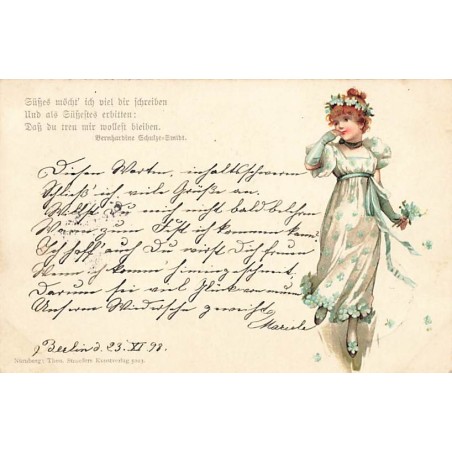 Süßes möcht' ich viel dir schreiben
Und als Süßestes erbitten:
Daß du treu mir wollest bleiben.
Bernhardine Schulze-Smidt.
Diesen Worten, inhaltschweren
Schließ' ich viele Grüße an.
Willst Du mich nicht bald belehren
Wann zum Fest ich kommen kann?
Ich hoff' auch Du wirst Dich freun
Wenn ich komm hineingeschneit.
Darum sei viel Glück von nun
Unserm Wiedersehn geweiht
Mariele
Berlin d. 23. XI 98.
Nürnberg: Theo. Stroefers Kunstverlag